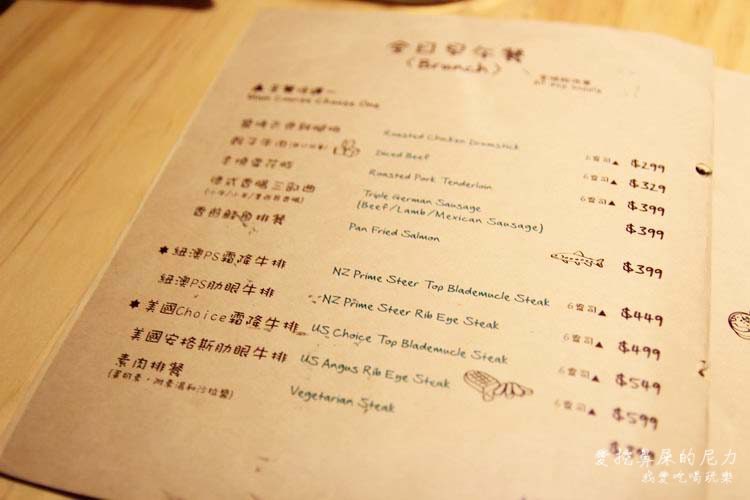 今日早午餐
(Brunch)
Main Course Choose One
Roasted Chicken Drumstick $299
骰子牛肉 Diced Beef 6盎司▲ $329
Roasted Pork Tenderloin 6盎司▲ $399
德式香腸三部曲 Triple German Sausage $399
(Beef/Lamb/Mexican Sausage)
香煎鮭魚排餐 Pan Fried Salmon $399
★紐澳PS霜降牛排 NZ Prime Steer Top Blademucle Steak 6盎司▲ $449
紐澳PS肋眼牛排 NZ Prime Steer Rib Eye Steak 6盎司▲ $499
★美國Choice霜降牛排 US Choice Top Blademucle Steak 6盎司▲ $549
美國安格斯肋眼牛排 US Angus Rib Eye Steak 6盎司▲ $599
素肉排餐 Vegetarian Steak
愛挖鼻屎的尼力
我愛吃喝玩樂